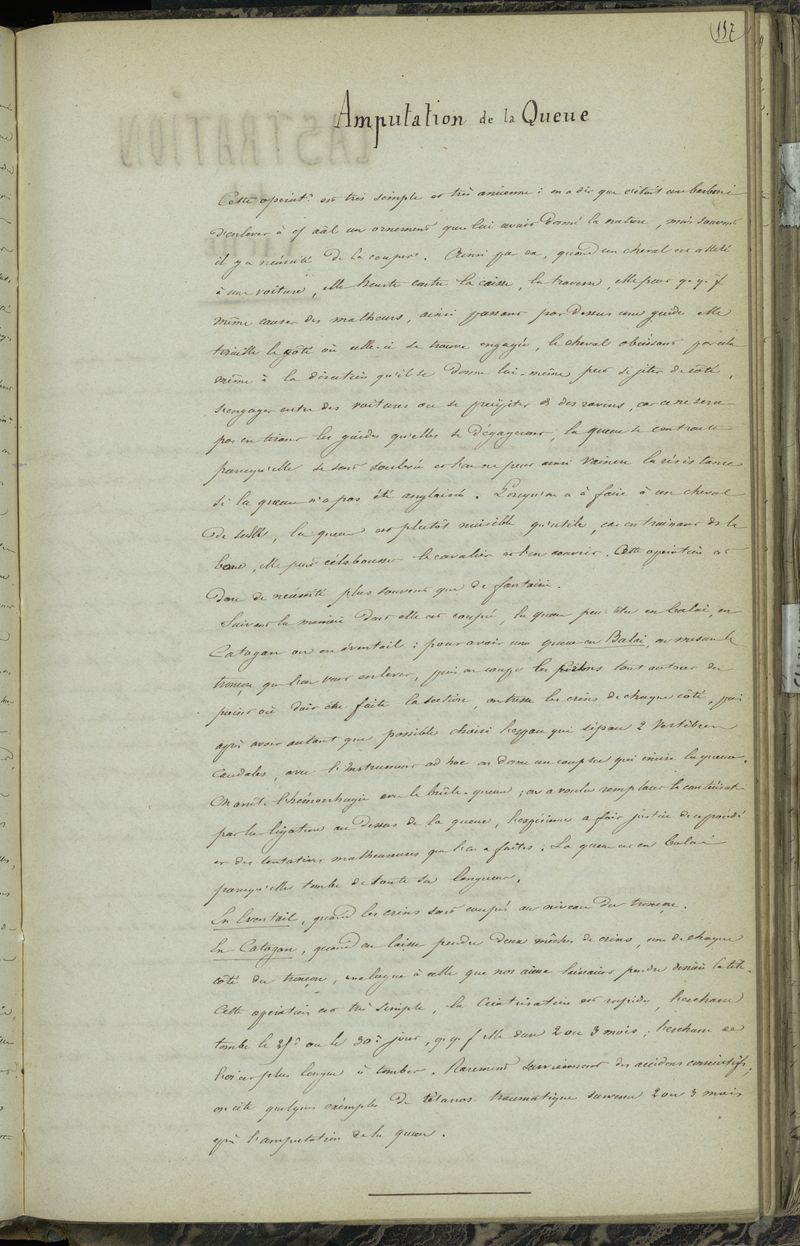 117
Amputation de la Queue
Cette opérat. est très simple et très ancienne : on a dit que c'était une barbarie
d'enlever à cf aāl un ornement que lui avait donné la nature, mais souvent
il y a nécessité de la couper. Ainsi par ex, quand un cheval est attelé
à une voiture, elle heurte contre la caisse, la traverse, elle peut qq f
même causer des malheurs, ainsi passant par dessus une guide elle
tiraille le côté où celle-ci se trouve engagée, le cheval obéissant par cela
même à la direction qu'il se donne lui-même peut se jeter de côté,
s'engager entre des voitures ou se précipiter ds des ravins, car ce ne sera
pas en tirant les guides qu'elles se dégageront, la queue se contracte
parcequ'elle se sent soulevée et l'on ne peut ainsi vaincre la résistance
si la queue n'a pas été anglaisée. Lorsqu'on a à faire à un cheval
de selle, la queue est plutôt nuisible qu'utile, car en trainant ds la
boue, elle peut éclabousser le cavalier et l'en couvrir. Cette opération est
donc de nécessité plus souvent que de fantaisie.
Suivant la manière dont elle est coupée, la queue peut être en balai, en
Catogan ou en éventail : pour avoir une queue en Balai, on mesure le
tronçon que l'on veut enlever, puis on coupe les tout autour du
point où doit être faite la section, on tresse les crins de chaque côté, puis
après avoir autant que possible choisi l'espace qui sépare 2 vertèbres
Caudales, avec l'instrument ad hoc on donne un coup sec qui incise la queue.
On arrête l'hémorrhagie avec le brûle-queue ; on a voulu remplacer la cautérisat.
par la ligature au dessus de la queue, l'expérience a fait justice de ce procédé
et des tentatives malheureuses que l'on a faites. La queue est en balai
parcequ'elle tombe de toute sa longueur.
En Eventail, quand les crins sont coupés au niveau du tronçon.
En Catogan, quand on laisse pendre deux mèches de crins, une de chaque
côté du tronçon, analogue à celle que nos aïeux laissaient pendre derrière la tête.
Cette opération est très simple, la cicatrisation est rapide, l'eschare
tombe le 25e ou le 30e jour, qq f elle dure 2 ou 3 mois ; l'eschare de
l'os est plus longue à tomber. Rarement surviennent des accidens consécutifs,
on cite quelques exemples de tétanos traumatique survenu 2 ou 3 mois
après l'amputation de la queue.